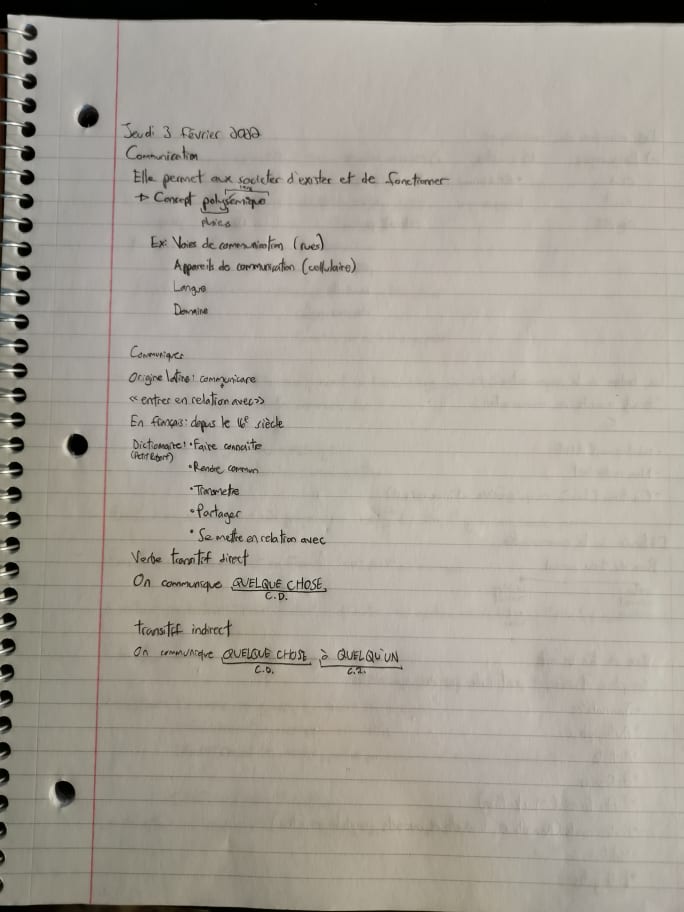 Jeudi 3 février 2022
Communication
Elle permet aux societer d'exister et de fonctionner
→ Concept polysémique
sens
plusieurs
Ex: Voies de communication (rues)
Appareils de communication (cellulaire)
Langue
Domaine
Communiquer
Origine latine: communicare
« entrer en relation avec »
En français: depuis le 16e siècle
Dictionnaire: • Faire connaitre
(Petit Robert)
• Rendre commun
• Transmettre
• Partager
• Se mettre en relation avec
Verbe transitif direct
On communique QUELQUE CHOSE.
C.D.
transitif indirect
On communique QUELQUE CHOSE à QUELQU'UN
C.D. C.I.